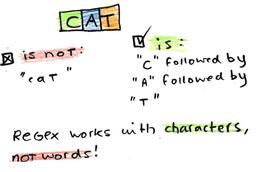 CAT
is not:
"cat"
is:
"C" followed by
"A" followed by
"T"
Regex works with characters,
not words!